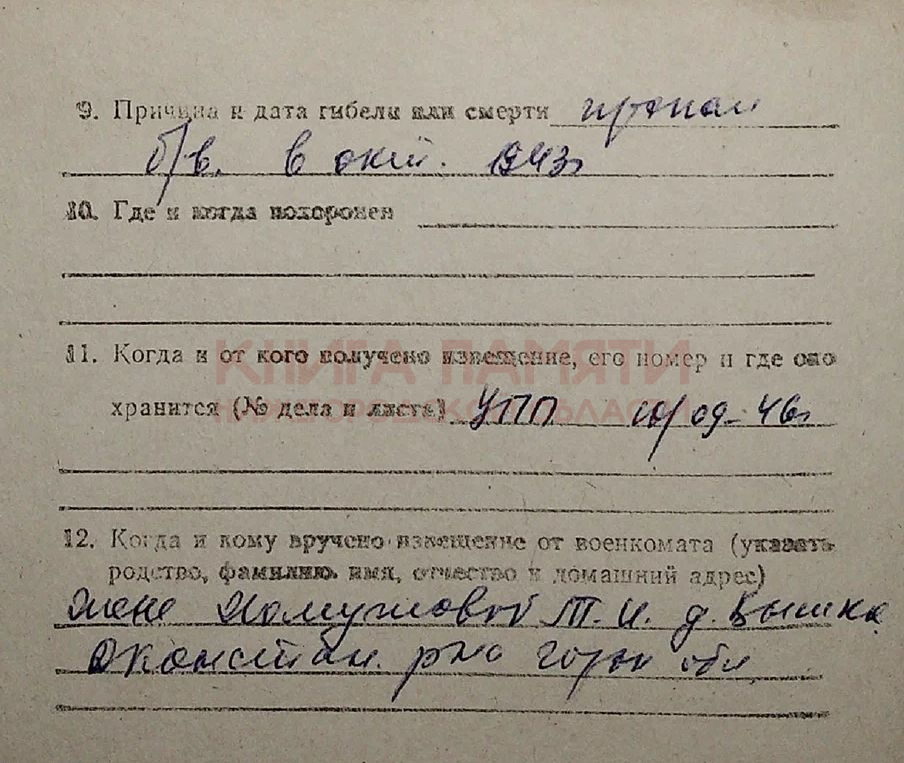 9. Причина и дата гибели или смерти пропал
б/в. в окт. 1943г
10. Где и когда похоронен
11. Когда и от кого получено извещение, его номер и где оно
КНИГА ПАМЯТИ
хранится (№ дела и листа) УПП 10/09-46г
НИЖЕГОРОДСКОЙ ОБЛАСТИ
12. Когда и кому вручено извещение от военкомата (указать
родство, фамилию имя, отчество и домашний адрес)
жене Хомутовой Т.И. д. Вышка
Д Констан. рно горьк обл